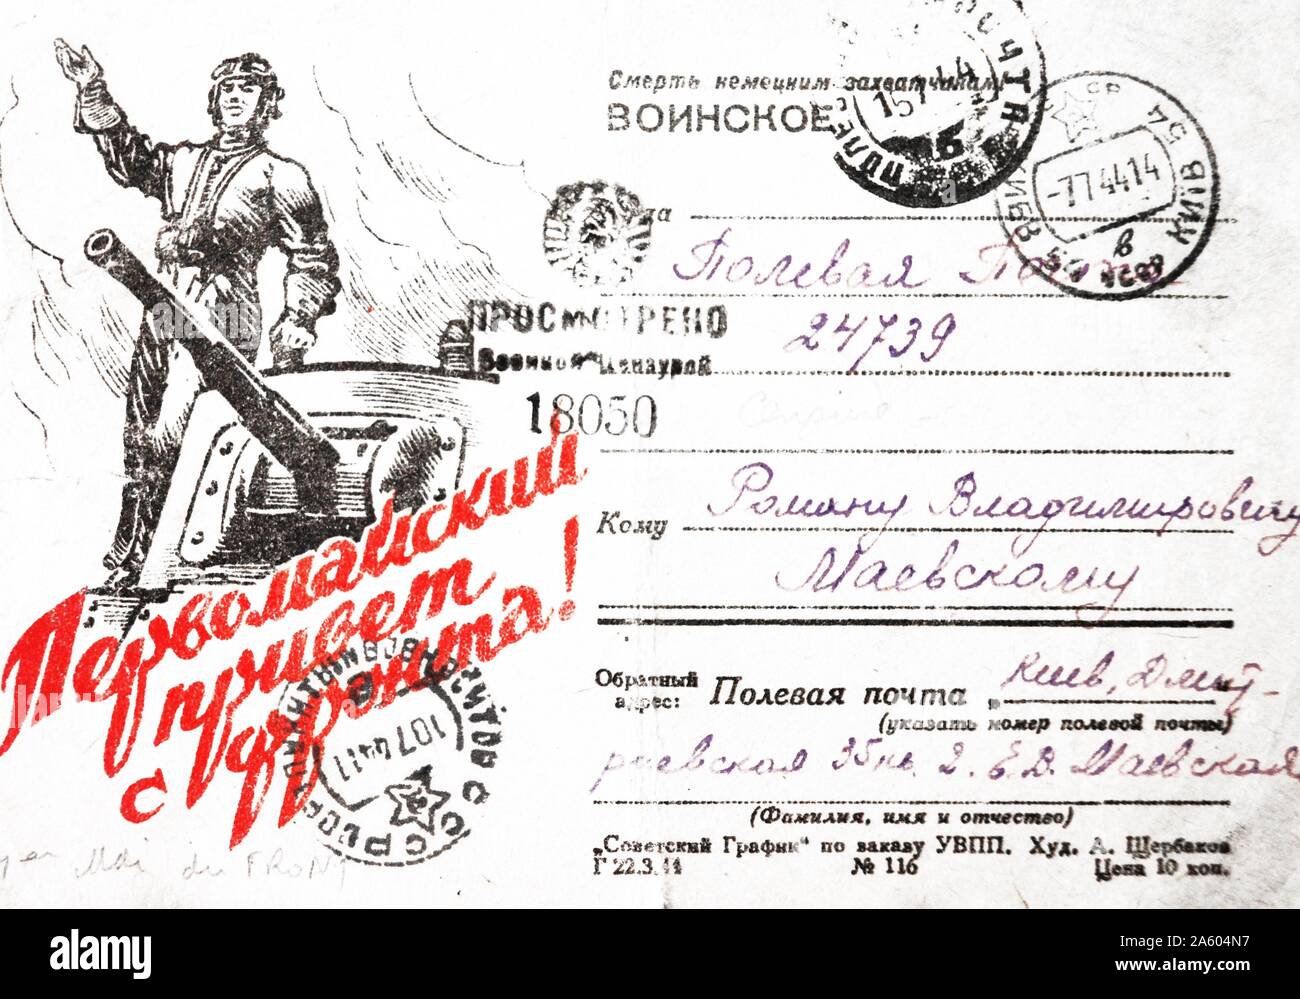 Смерть немецким захватчикам!
ВОИНСКОЕ
ПОЧТА
15 7 44
б
СР
КИЇВ
-7 7 44 14
в
Полевая
24739
ПРОСМОТРЕНО
Военной Цензурой
18050
Кому Роману Владимировичу
Маевскому
Первомайский
привет
с фронта!
10 7 44 11
СССР
Обратный адрес: Полевая почта Киев, Дмит-
(указать номер полевой почты)
риевская 35 кв. 2. Е.В. Маевская
(Фамилия, имя и отчество)
„Советский График“ по заказу УВПП. Худ. А. Щербаков
Г 22.3.44 № 116 Цена 10 коп.
1er Mai du FRONT
a alamy stock photo
alamy
Image ID: 2A604N7
www.alamy.com